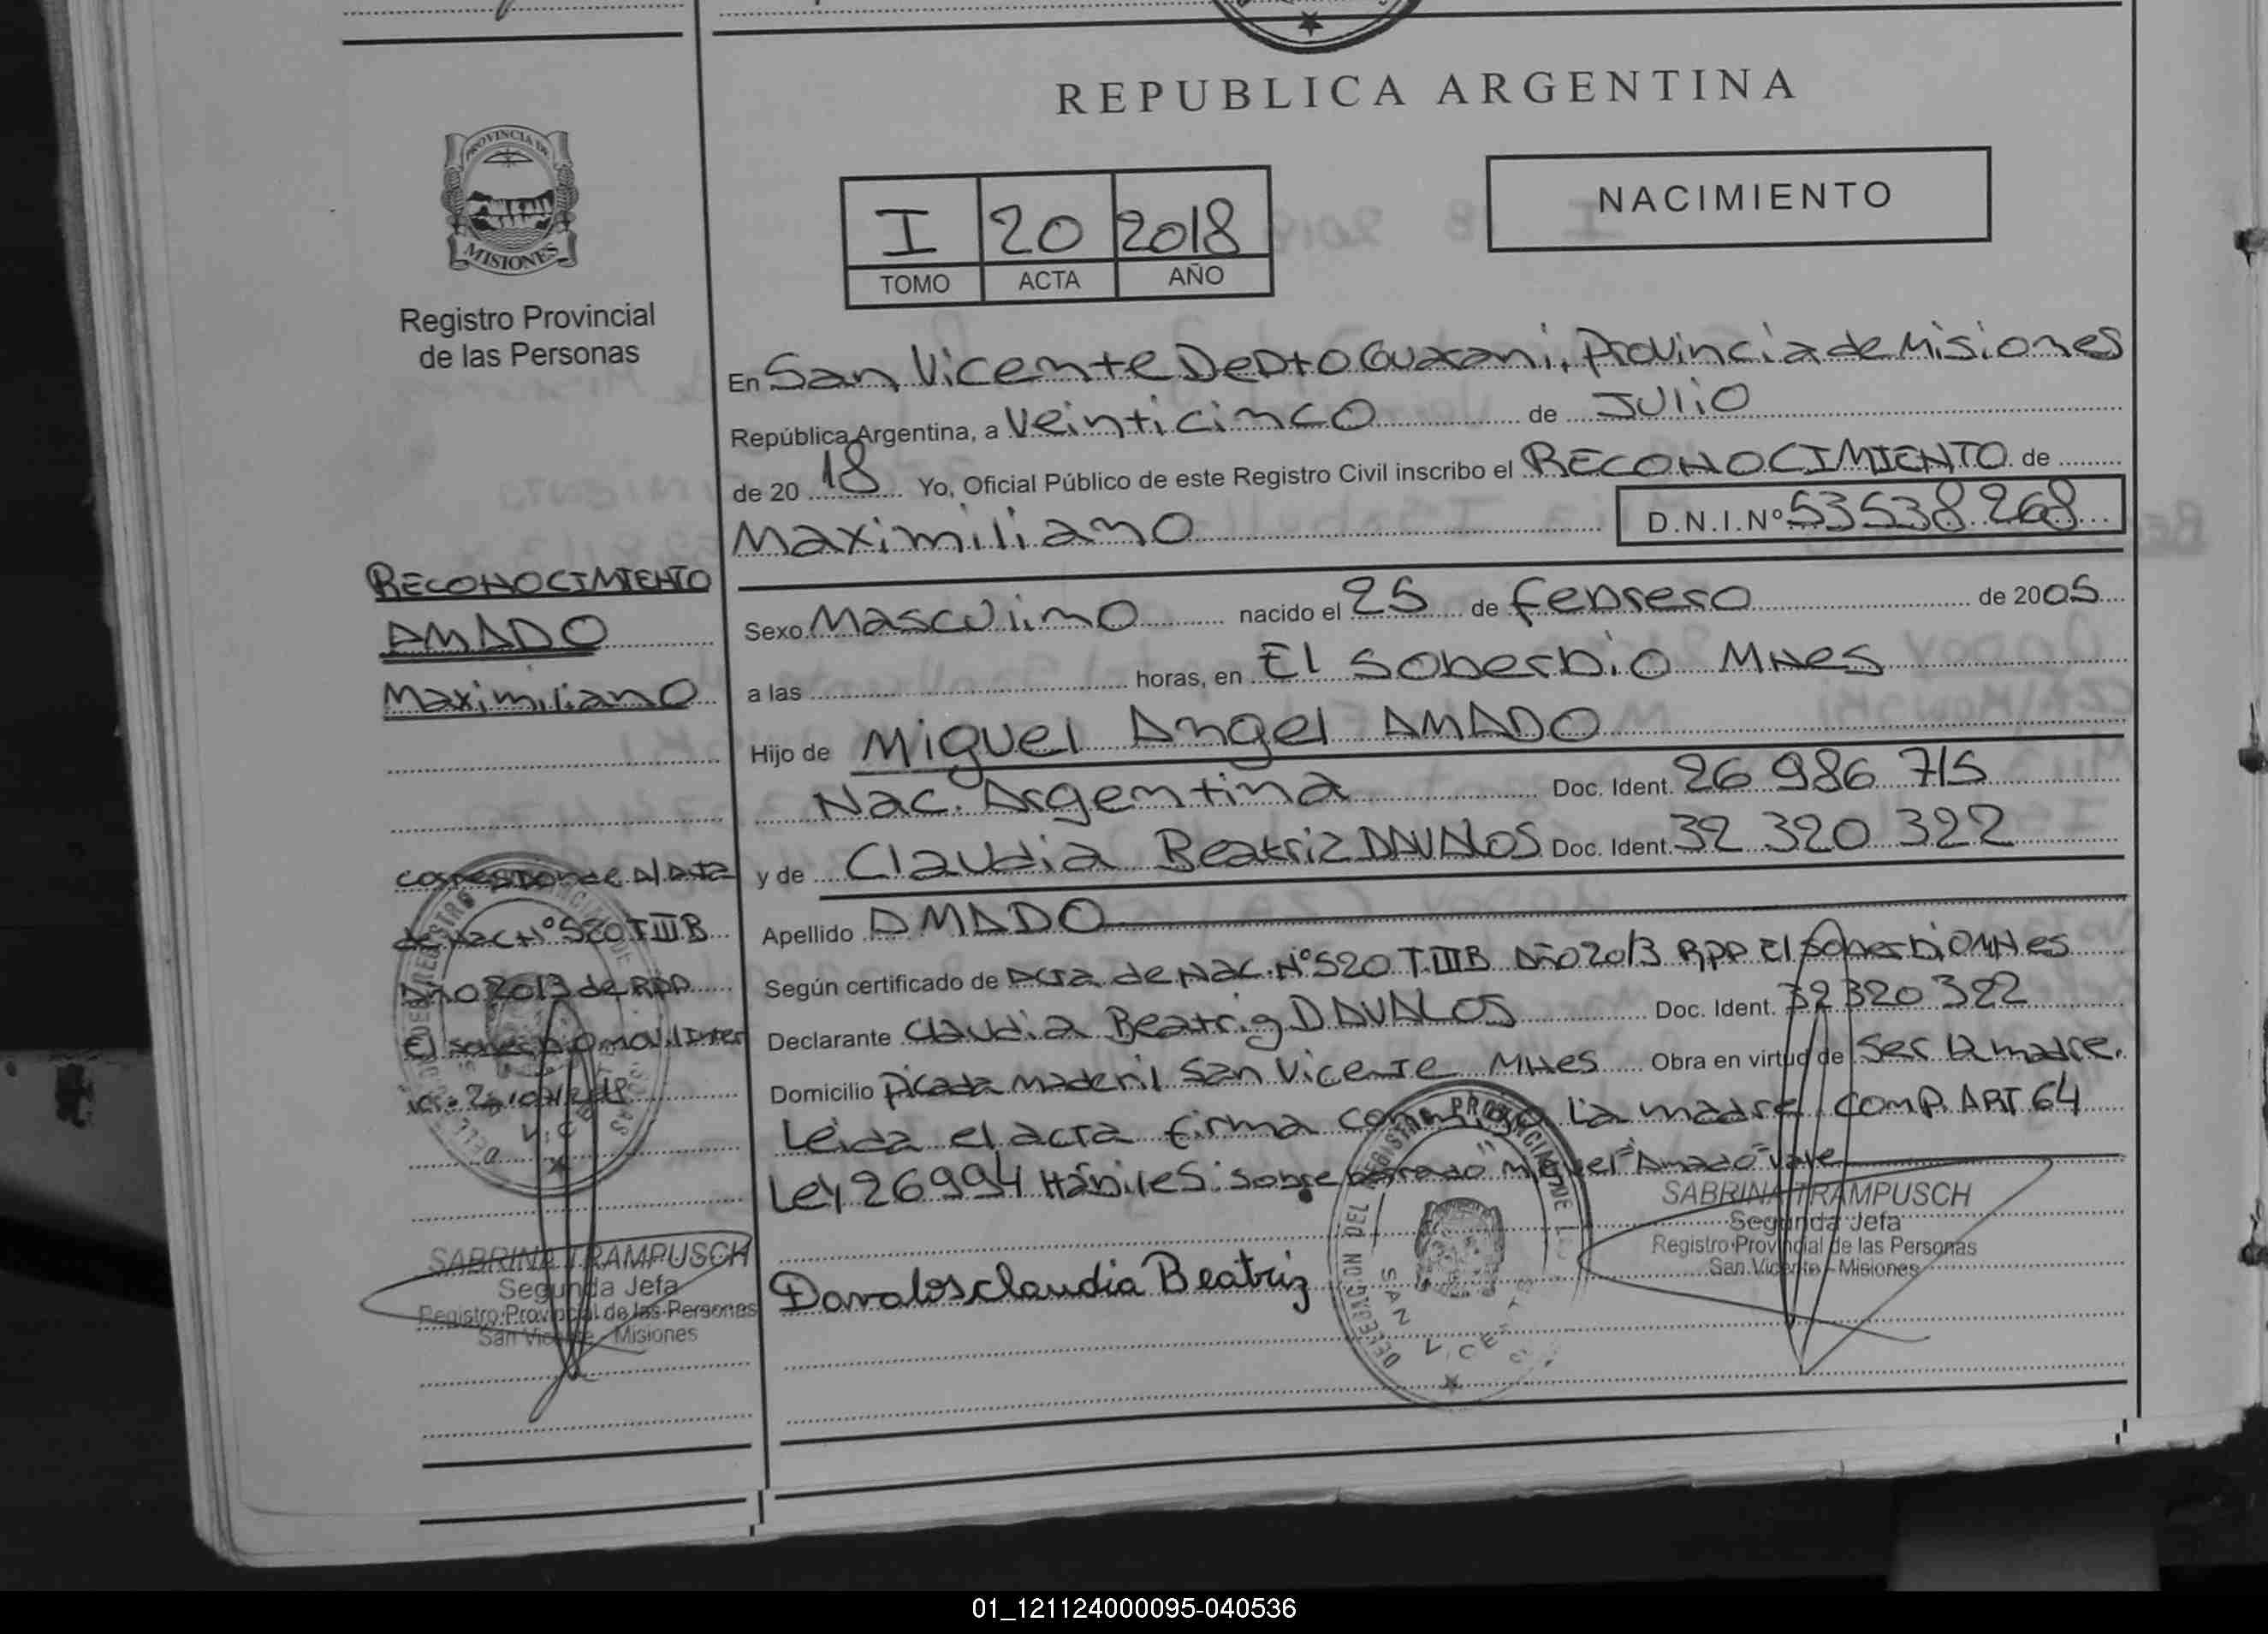 REPUBLICA ARGENTINA
PROVINCIA DE
MISIONES
Registro Provincial
de las Personas
NACIMIENTO
I 20 2018
TOMO ACTA AÑO
En San Vicente Depto Guarani, Provincia de Misiones
República Argentina, a Veinticinco de Julio
de 20 18 Yo, Oficial Público de este Registro Civil inscribo el RECONOCIMIENTO de
Maximiliano D.N.I.Nº 53538268
Sexo Masculino nacido el 25 de febrero de 2005
a las horas, en El Soberbio MNES
Hijo de Miguel Angel AMADO
Nac. Argentina Doc. Ident. 26 986 715
y de Claudia Beatriz DAVALOS Doc. Ident. 32 320 322
Apellido AMADO
Según certificado de Acta de Nac. Nº 520 T.IIIB Año 2013 RPP El Soberbio MNES
Declarante Claudia Beatriz DAVALOS Doc. Ident. 32320322
Domicilio Picada Maderil San Vicente MNES Obra en virtud de Ser la madre.
Leida el acta firma conmigo La madre comp. ART 64
Ley 26994 Hábiles: Sobre borrado Miguel "Amado" vale
Davalos claudia Beatriz
SABRINA TRAMPUSCH
Segunda Jefa
Registro Provincial de las Personas
San Vicente - Misiones
RECONOCIMIENTO
AMADO
Maximiliano
corresponde al Acta
de Nac Nº 520 T IIIB
Año 2013 de RPP
El Soberbio
SABRINA TRAMPUSCH
Segunda Jefa
Registro Provincial de las Personas
San Vicente - Misiones
01_121124000095-040536